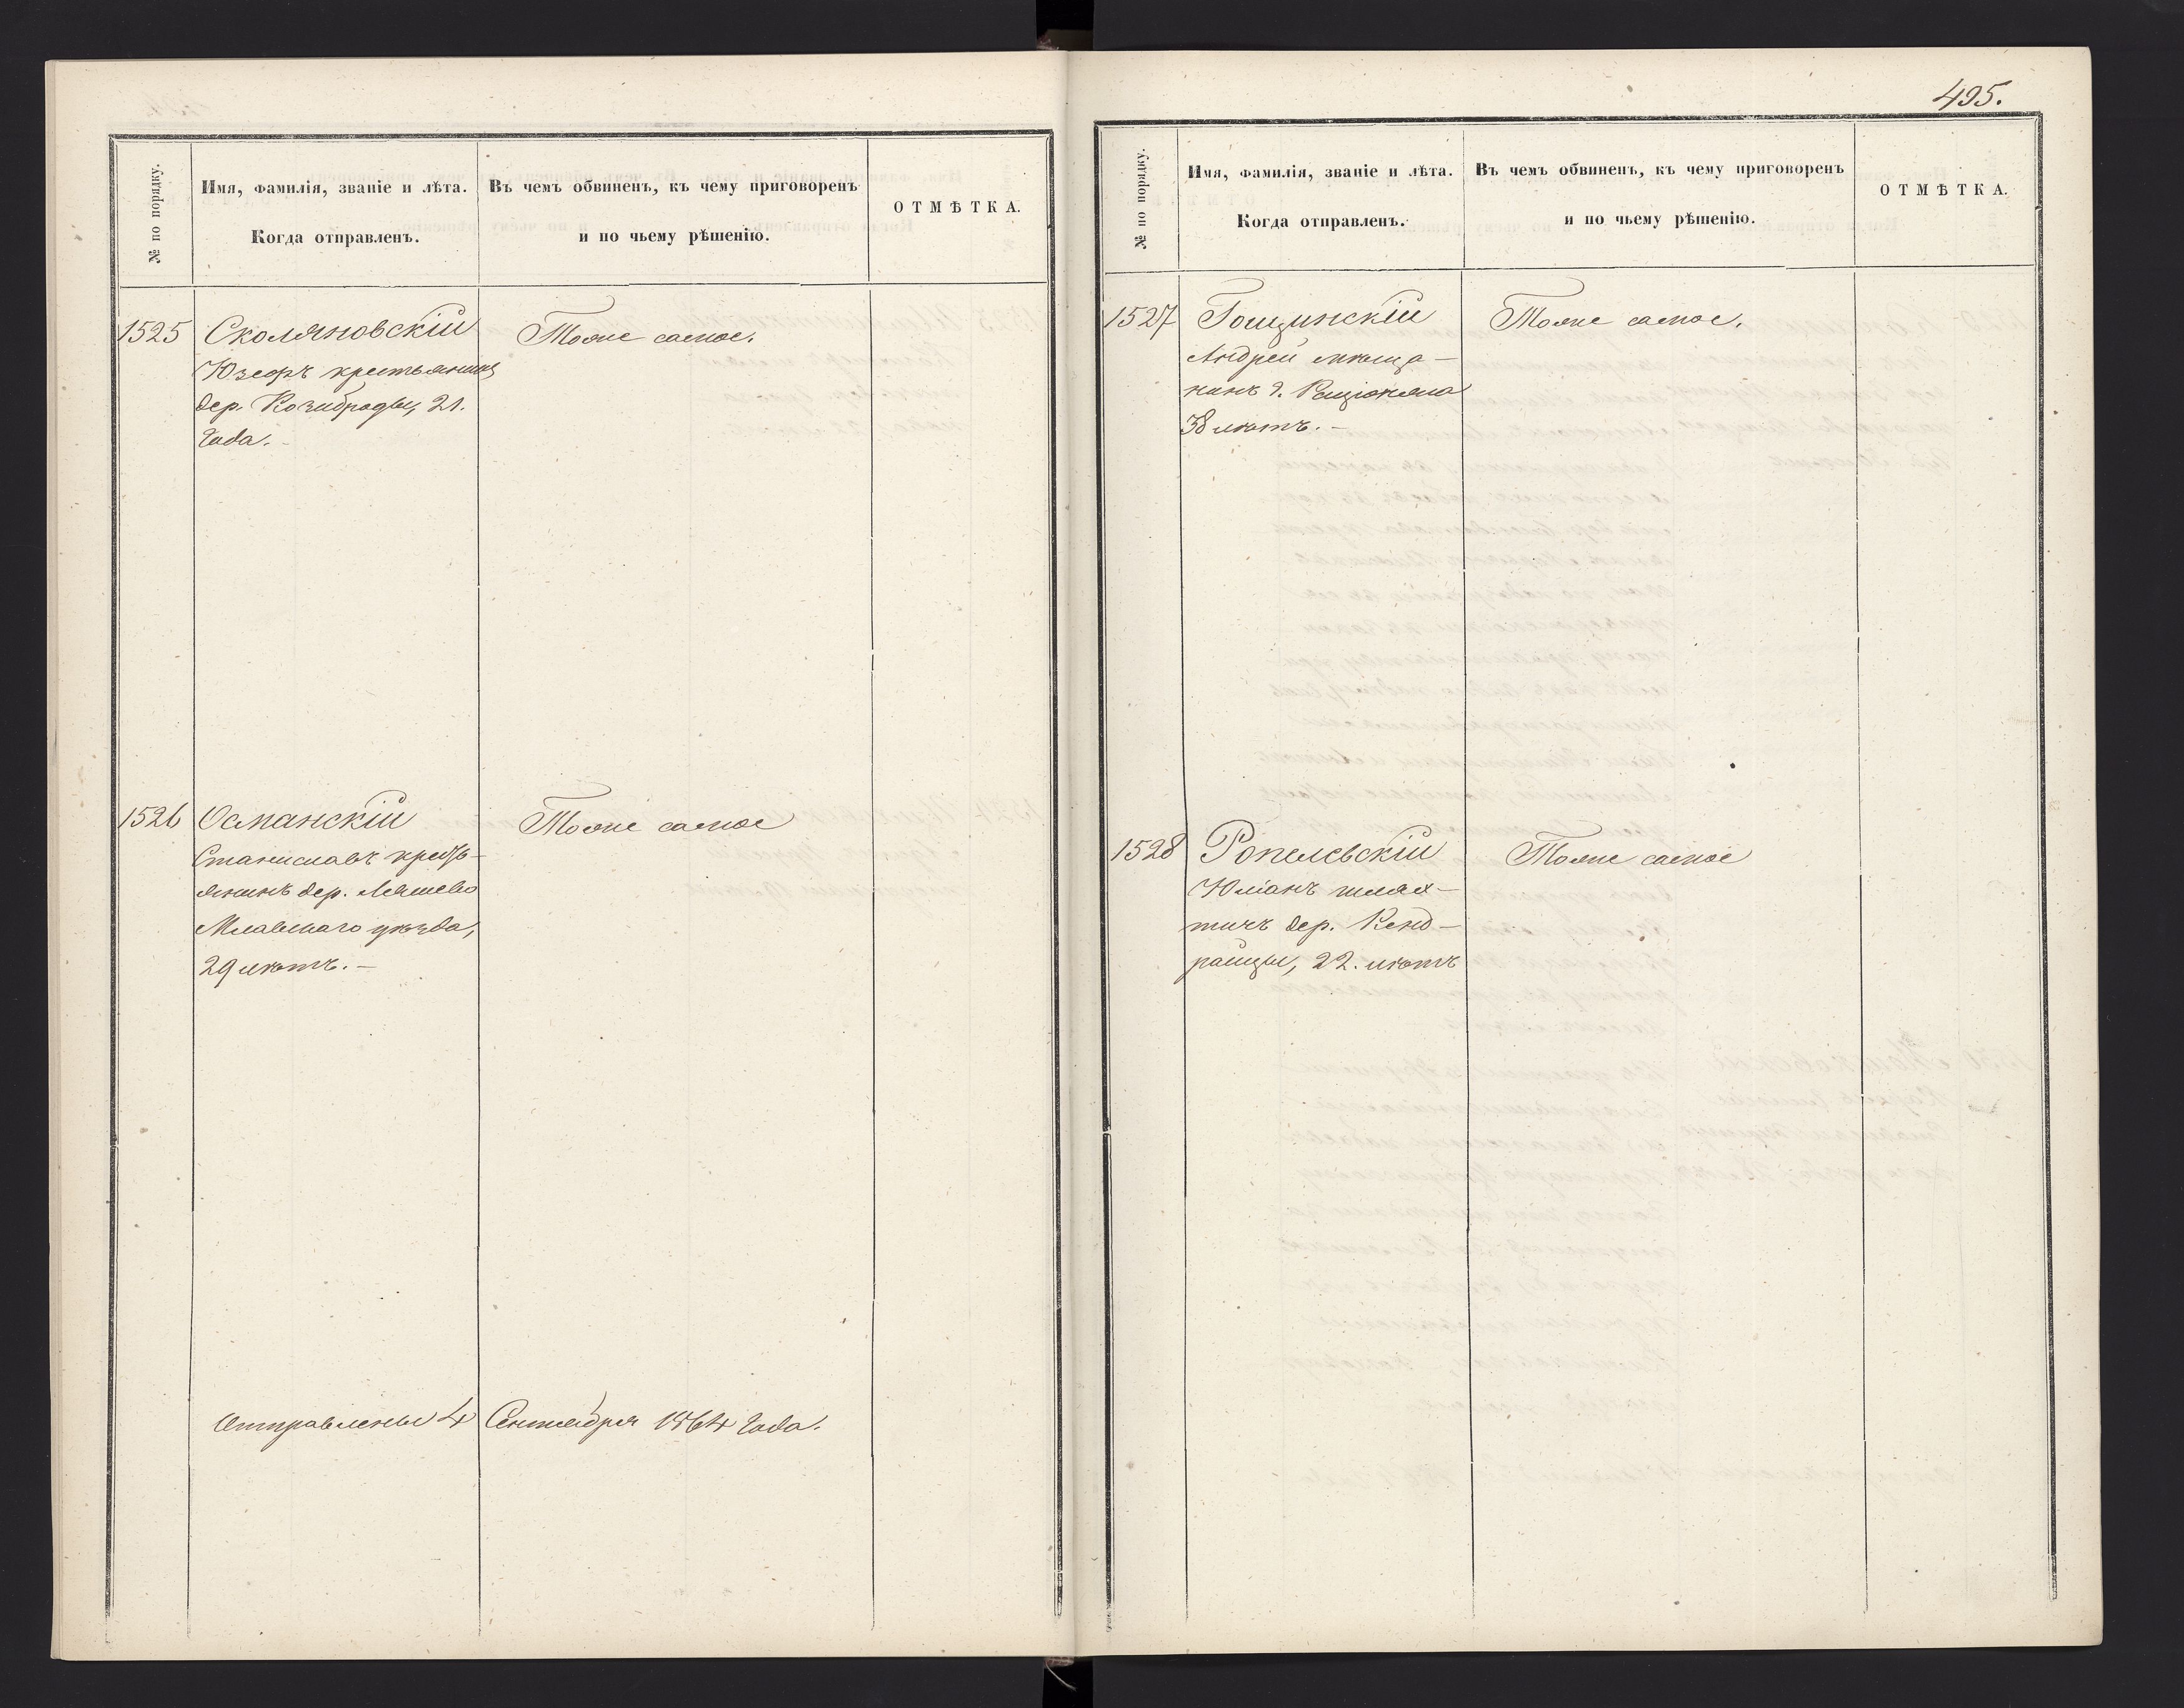 № по порядку.
Имя, фамилія, званіе и лѣта.
Когда отправленъ.
Въ чемъ обвиненъ, къ чему приговоренъ
и по чьему рѣшенію.
ОТМѢТКА.
1525 Сколяновскій Тоже самое.
Юзефъ крестьянинъ
дер. Козиброды, 21.
года.-
1526 Османскій Тоже самое
Станиславъ кресть-
янинъ дер. Ляшево
Млавскаго уѣзда,
29 лѣтъ.-
Отправлены 4 Сентября 1864 года.
495.
№ по порядку.
Имя, фамилія, званіе и лѣта.
Когда отправленъ.
Въ чемъ обвиненъ, къ чему приговоренъ
и по чьему рѣшенію.
ОТМѢТКА.
1527 Гощинскій Тоже самое.
Андрей мѣща-
нинъ г. Раціонжа
38 лѣтъ.-
1528 Ропелевскій Тоже самое
Юліанъ шлях-
тичъ дер. Кенд-
, 22. лѣтъ